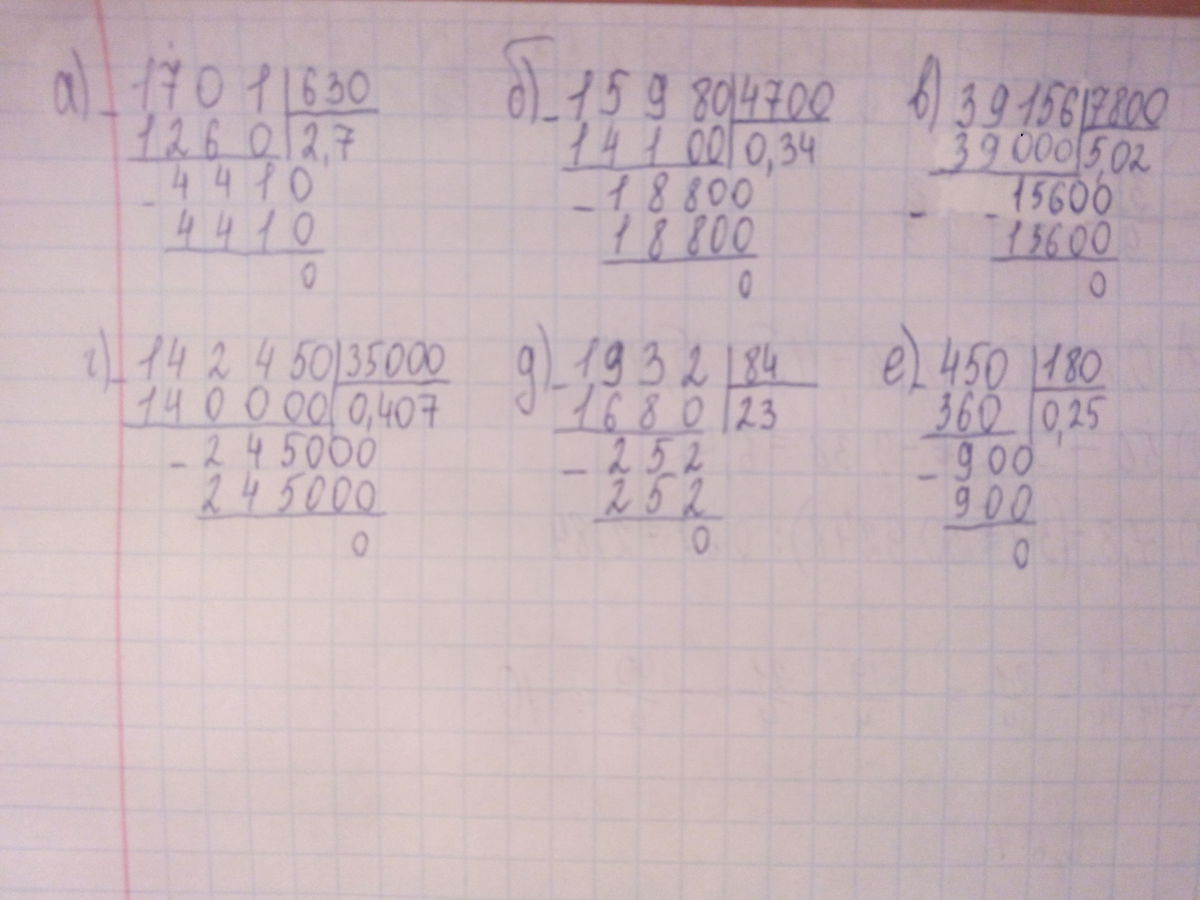 а) - 1701 | 630
1260 | 2,7
- 4410
4410
0
б) - 15980 | 4700
14100 | 0,34
- 18800
18800
0
в) 39156 | 7800
39000 | 5,02
- - 15600
15600
0
г) - 142450 | 35000
140000 | 0,407
- 245000
245000
0
д) - 1932 | 84
1680 | 23
- 252
252
0
е) - 450 | 180
360 | 0,25
- 900
900
0